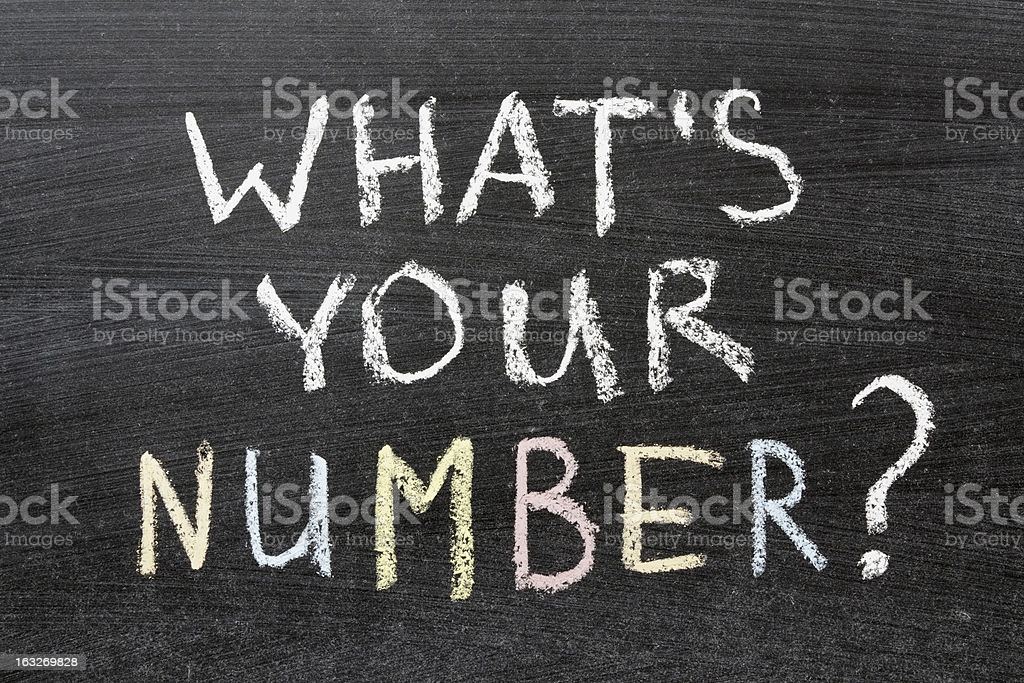 WHAT'S
YOUR
NUMBER?
iStock
by Getty Images
163269828